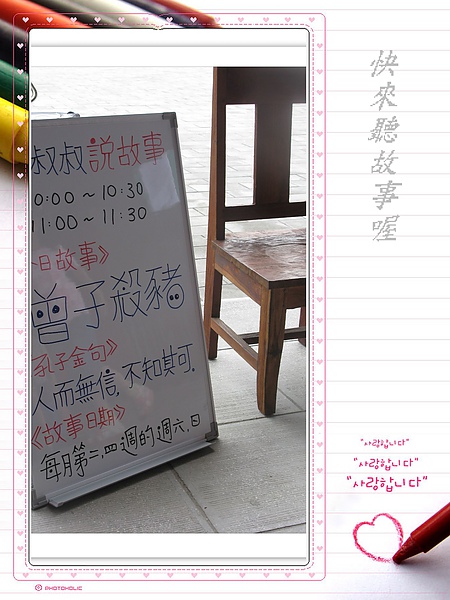 叔叔說故事
0:00~10:30
11:00~11:30
日故事》
曾子殺豬
孔子金句》
人而無信,不知其可.
《故事日期》
每月第二.四週的週六.日
快來聽故事喔
"사랑합니다"
"사랑합니다"
"사랑합니다"
PHOTOHOLIC